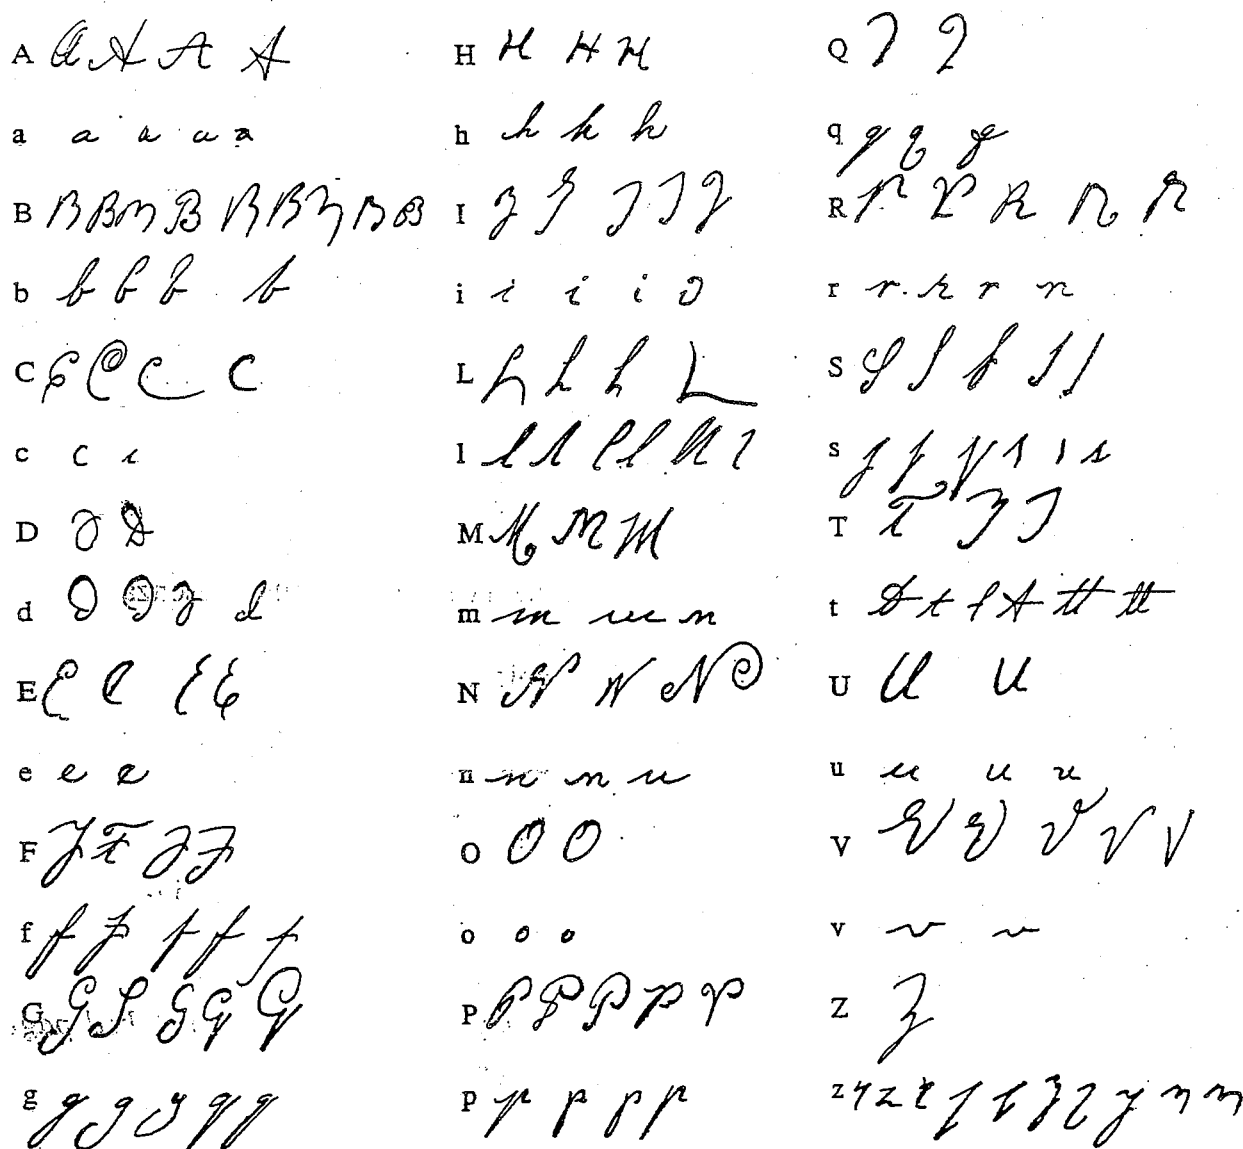 A a A A A
a a a a a
B B B B B B B B B B
b b b b b
C C C C C
c c c
D D D
d d d d d
E E E E E
e e e
F F F F F
f f f f f f
G G G G G G
g g g g g g
H H H H
h h h h
I I I I I I
i i i i i
L L L L L
l l l l l l l
M M M M
m m m m
N N N N
n n n n
O O O
o o o
P P P P P P
p p p p p
Q Q Q
q q q q
R R R R R R
r r r r r
S S S S S S
s s s s s s s
T T T T
t t t t t tt tt
U U U
u u u u
V V V V V V
v v v
Z Z
z z z z z z z z z z z